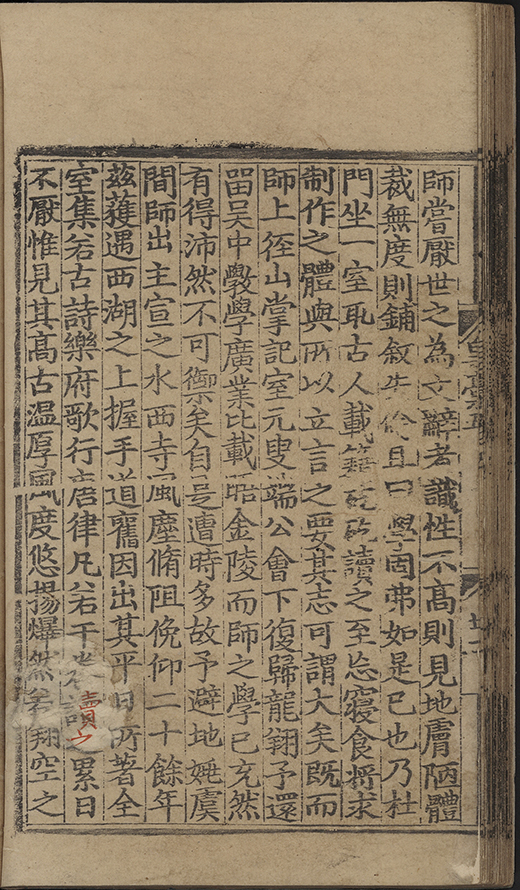 師嘗厭世之為文辭者識性不高則見地膚陋體
裁無度則鋪敘失倫且曰學固弗如是已也乃杜
門坐一室取古人載籍矻矻讀之至忘寢食將求
制作之體與所以立言之要其志可謂大矣既而
師上徑山掌記室元叟端公會下復歸龍翔予還
畱吳中斆學廣業比載謁金陵而師之學已充然
有得沛然不可禦矣自是遭時多故予避地姚虞
間師出主宣之水西寺風塵脩阻俛仰二十餘年
茲嶉遇西湖之上握手道舊因出其平日所著全
室集若古詩樂府歌行唐律凡若干卷讀之累日
不厭惟見其高古溫厚風度悠揚爗然若翔空之
讀之